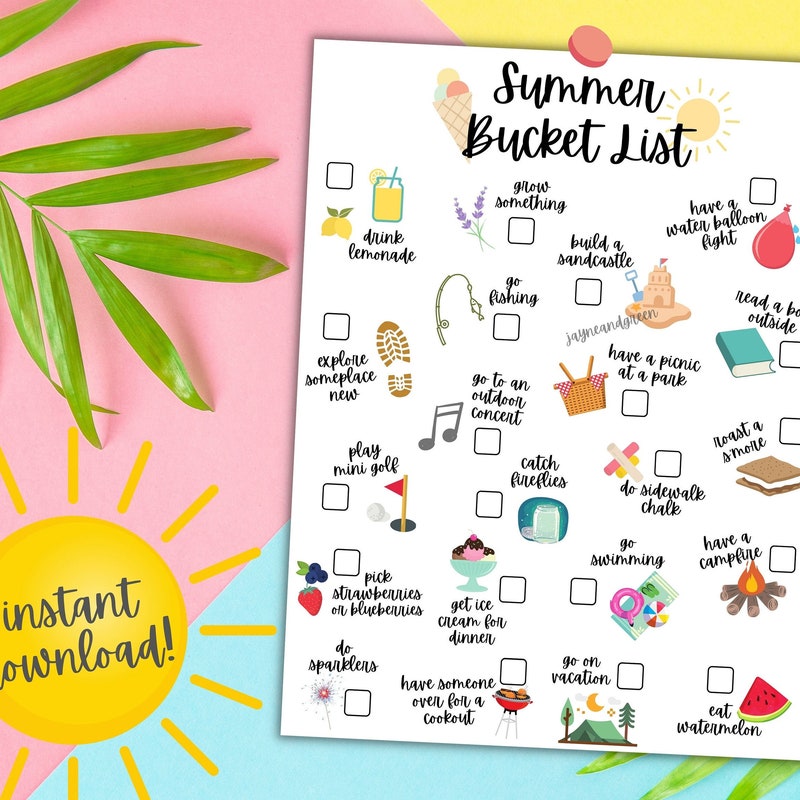 Summer
Bucket List
drink
lemonade
grow
something
build a
sandcastle
have a
water balloon
fight
go
fishing
jayneandgreen
read a
outside
explore
someplace
new
go to an
outdoor
concert
have a picnic
at a park
roast a
s'more
play
mini golf
catch
fireflies
do sidewalk
chalk
pick
strawberries
or blueberries
get ice
cream for
dinner
go
swimming
have a
campfire
do
sparklers
have someone
over for a
cookout
go on
vacation
eat
watermelon
instant
download!